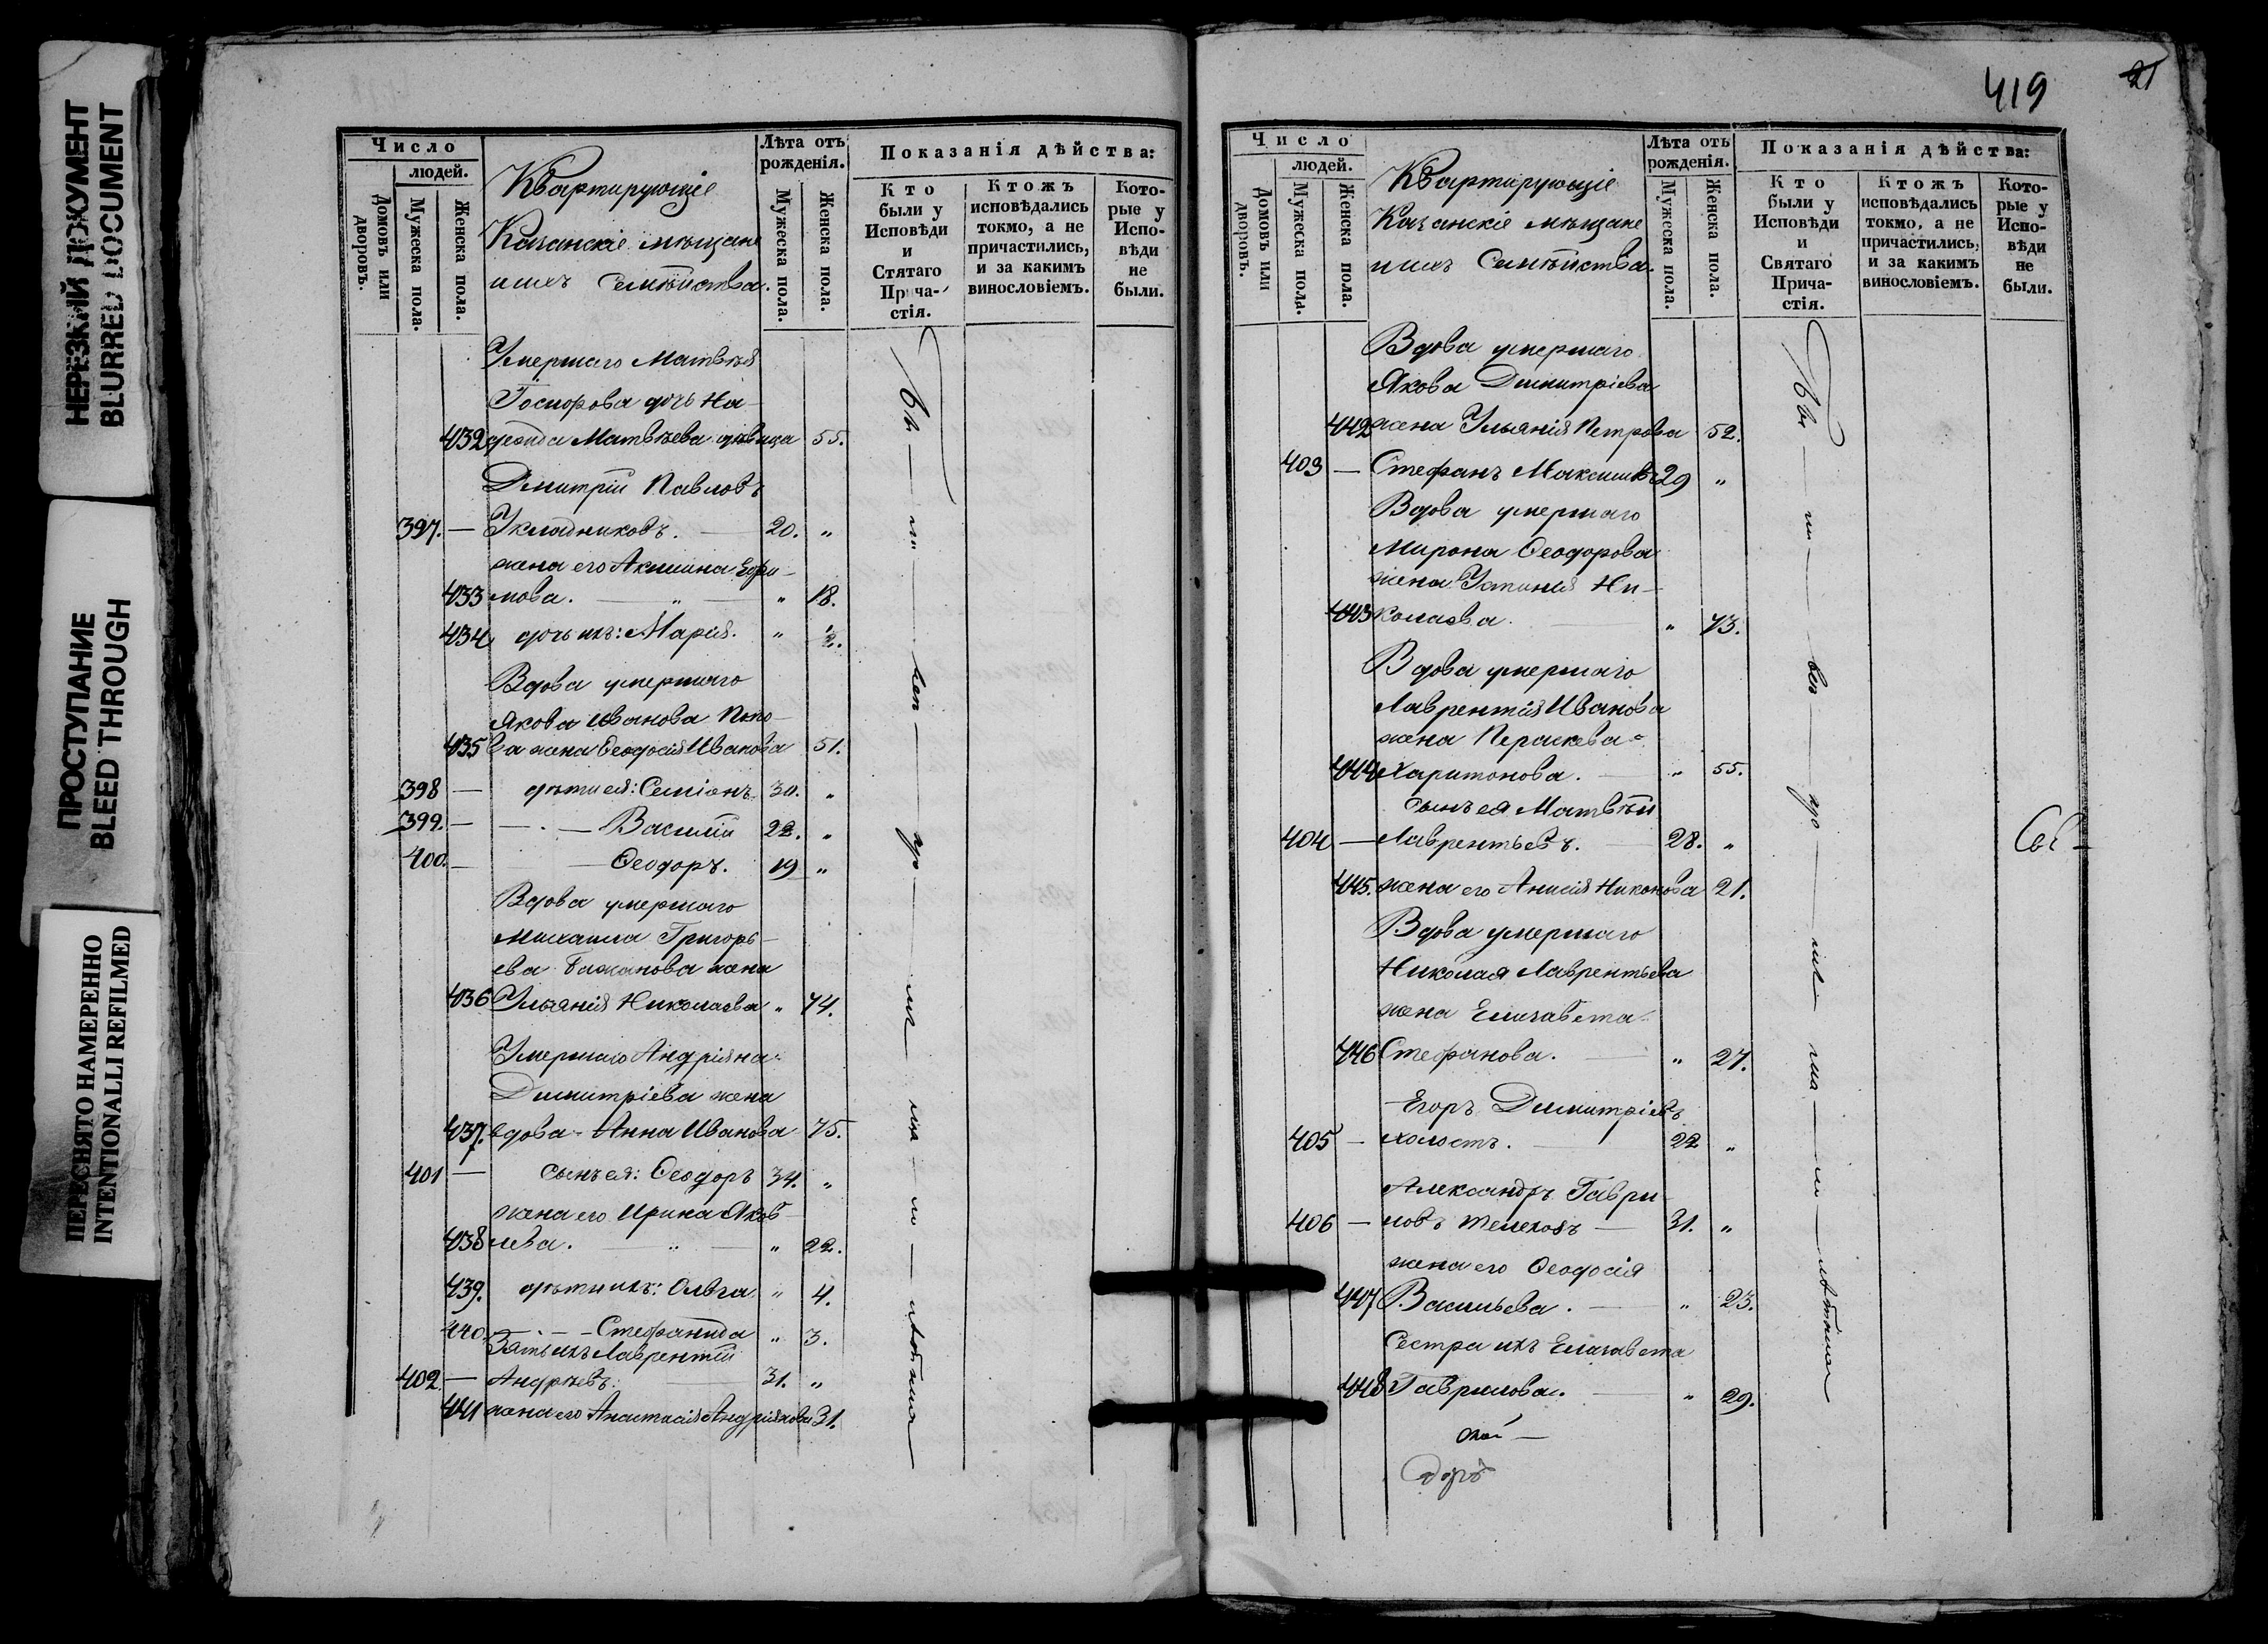 НЕРЕЗКИЙ ДОКУМЕНТ
BLURRED DOCUMENT
ПРОСТУПАНИЕ
BLEED THROUGH
ПЕРЕСНЯТО НАМЕРЕННО
INTENTIONALLI REFILMED
Число
людей.
Домовъ или дворовъ.
Мужеска пола.
Женска пола.
Квартирующіе
Казанскіе мѣщане
и ихъ семѣйства.
Лѣта отъ рожденія.
Мужеска пола.
Женска пола.
Показанія дѣйства:
Кто были у Исповѣди и Стятаго Прича-стія.
Ктожъ исповѣдались токмо, а не причастились, и за какимъ винословіемъ.
Кото-рые у Испо-вѣди не были.
Умершаго Матвѣя
дочь На-
432 Матвѣева дѣвица 55.
Дмитрій Павловъ
397. — Укладниковъ. — 20. "
жена его Акилина Ефи-
433 мова. — " — " 18.
434 дочь ихъ: Марія. " ½.
Вдова умершаго
Якова Иванова Попо-
435 ва жена Ѳеодосія Иванова 51.
398 — дѣти ея: Семіонъ 30. "
399. — — Василій 22. "
400. — — Ѳеодоръ. 19 "
Вдова умершаго
Михаила Григорь-
ева Бажанова жена
436 Ульянія Николаева " 74.
Умершаго Андріяна
Димитріева жена
437. вдова Анна Иванова 75.
401 — Сынъ ея: Ѳеодоръ 34. "
жена его Ирина Яков-
438 лева. — " — " 22.
439. дѣти ихъ: Ольга " 4.
440. — Стефанида " 3.
Зять ихъ Лаврентій
402. — Андрѣевъ. 31. "
441 жена его Анастасія Андріянова 31.
419
21
Число
людей.
Домовъ или дворовъ.
Мужеска пола.
Женска пола.
Квартирующіе
Казанскіе мѣщане
и ихъ Семѣйства.
Лѣта отъ рожденія.
Мужеска пола.
Женска пола.
Показанія дѣйства:
Кто были у Исповѣди и Святаго Прича-стія.
Ктожъ исповѣдались токмо, а не причастились, и за какимъ винословіемъ.
Кото-рые у Испо-вѣди не были.
Вдова умершаго
Якова Димитріева
442 жена Ульянія Петрова 52.
403 — Стефанъ Максимовъ 29 "
Вдова умершаго
Мирона Ѳеодорова
жена Устинія Ни-
443 колаева. — " 73.
Вдова умершаго
Лаврентія Иванова
жена Параскева
444 Харитонова. — " 55.
Сынъ ея Матвѣй
404 — Лаврентьевъ. — 28. "
445. жена его Анисія Никонова 21.
Вдова умершаго
Николая Лаврентьева
жена Елизавета
446 Стефанова. — " 27.
Егоръ Димитріевъ
405 — холостъ. — 22 "
Александръ Гаври-
406 — ловъ — 31. "
жена его Ѳеодосія
447 Васильева. — " 23.
Сестра ихъ Елизавета
448 Гаврилова. — " 29.